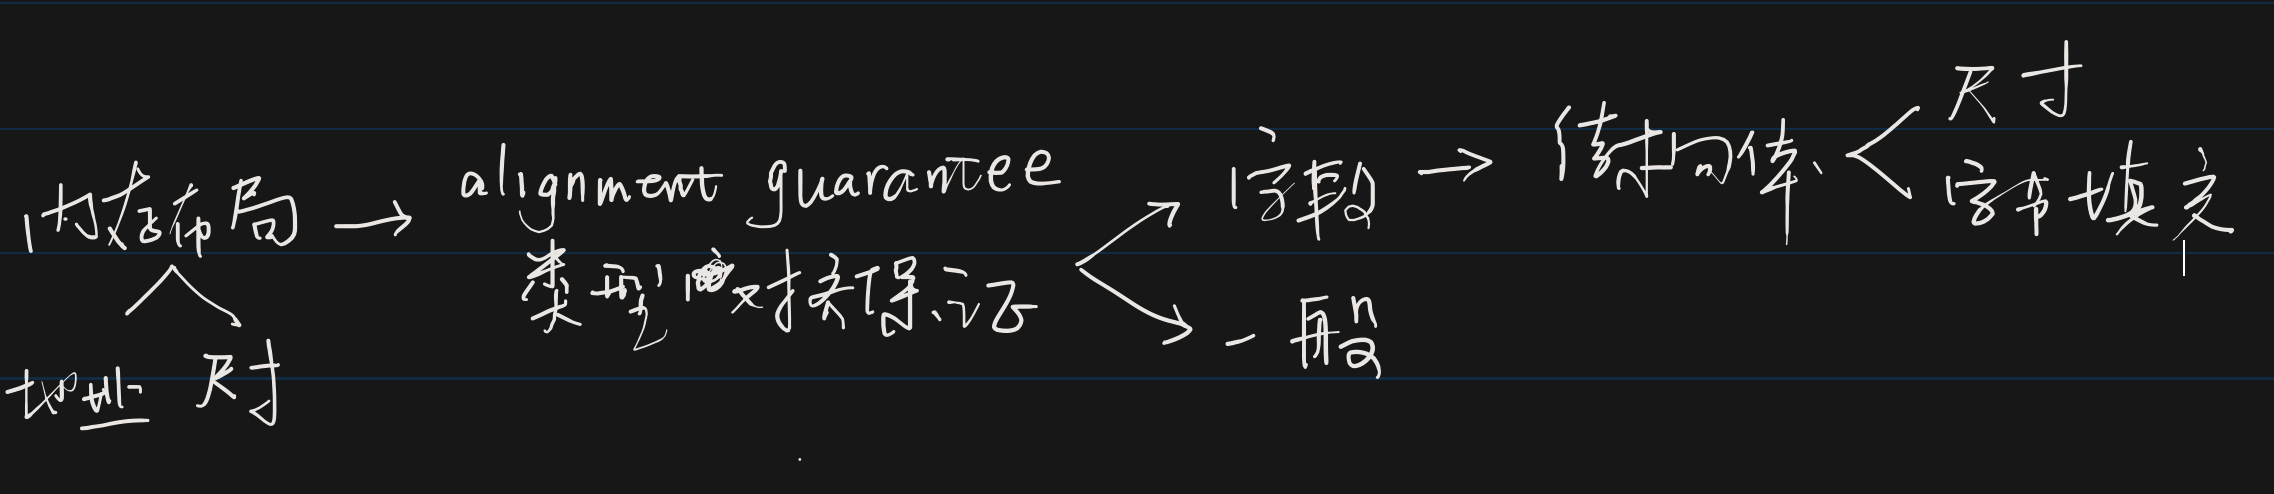 内存布局 → alignment guarantee
类型对齐保证
地址 尺寸
字段 → 结构体
一般
尺寸
字节填充